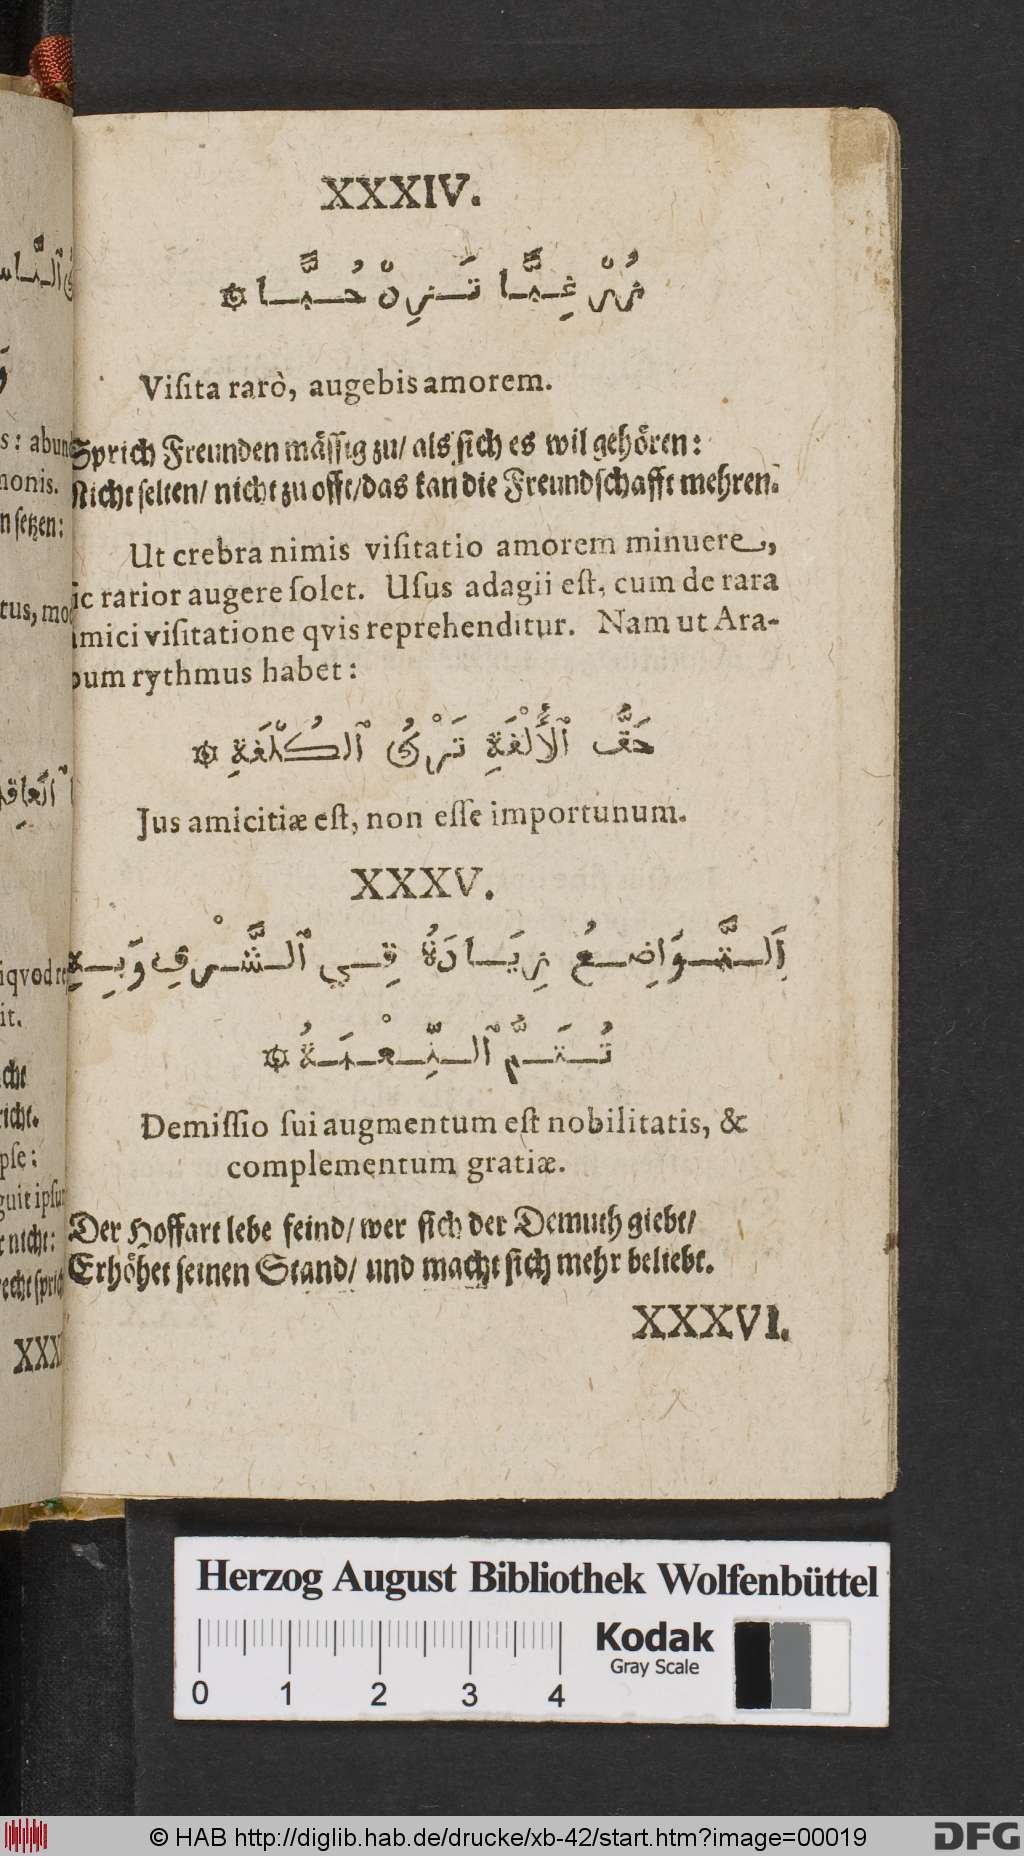 XXXIV.
زُرْ غِبًّا تَزِدْ حُبًّا ۞
Visita rarò, augebis amorem.
Sprich Freunden mässig zu/ als sich es wil gehören:
Nicht selten/ nicht zu offt/das kan die Freundschafft mehren.
Ut crebra nimis visitatio amorem minuere,
ic rarior augere solet. Usus adagii est, cum de rara
mici visitatione qvis reprehenditur. Nam ut Ara-
bum rythmus habet:
حَقُّ ٱلْأُلْفَةِ تَرْكُ ٱلْكُلْفَةِ ۞
Jus amicitiæ est, non esse importunum.
XXXV.
اَلتَّوَاضِعُ زِيَادَةُ فِي ٱلشَّرْفِ وَبِهِ
تُتَمُّ ٱلنِّعْمَةُ ۞
Demissio sui augmentum est nobilitatis, &
complementum gratiæ.
Der Hoffart lebe feind/ wer sich der Demuth giebt/
Erhöhet seinen Stand/ und macht sich mehr beliebt.
XXXVI.
Herzog August Bibliothek Wolfenbüttel
Kodak
Gray Scale
0 1 2 3 4
© HAB http://diglib.hab.de/drucke/xb-42/start.htm?image=00019
DFG